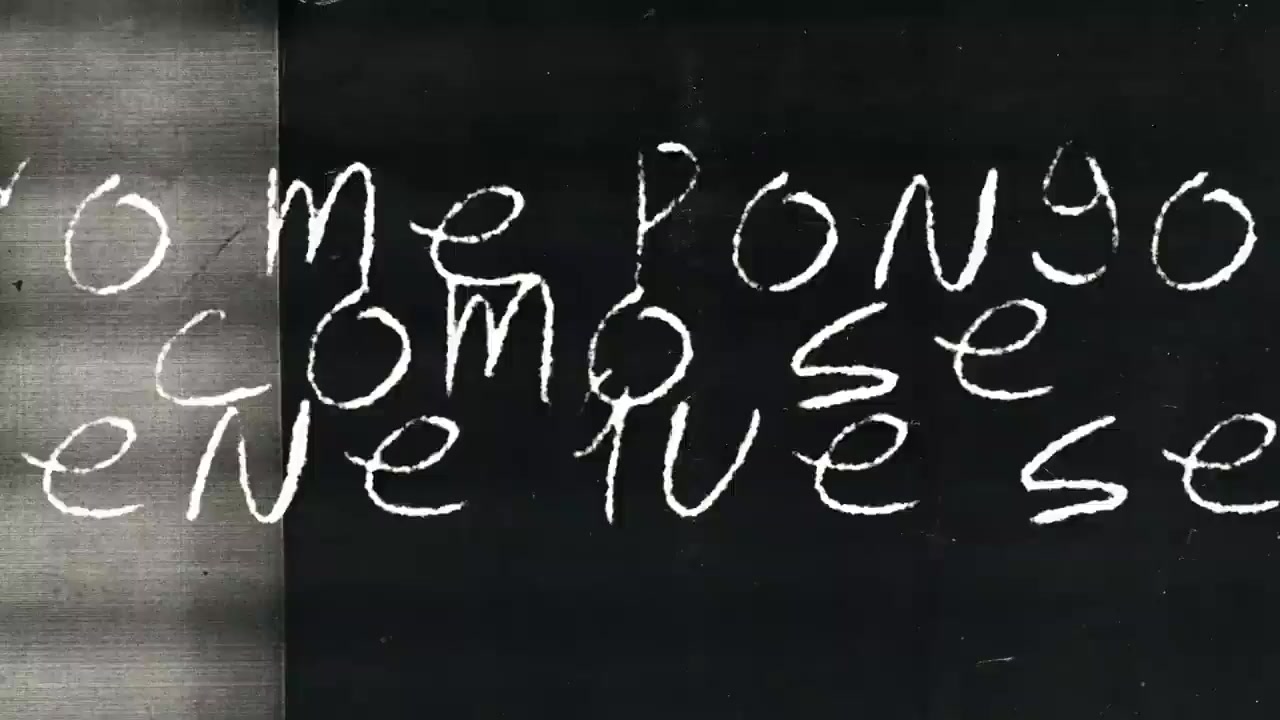 o me pongo
como se
ene tu e se